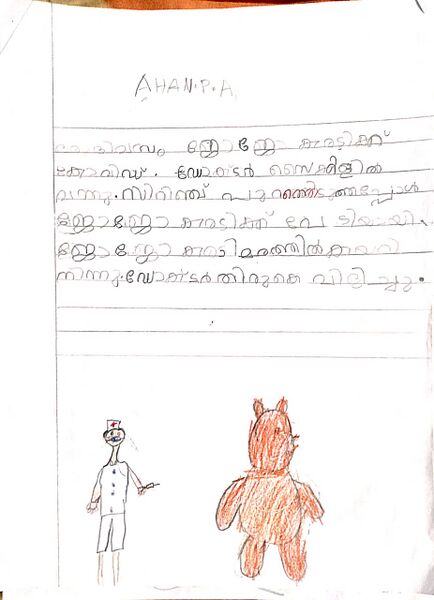 AHAN.P.A
ഒരു ദിവസം ജ്ജോജ്ജോ കരടിക്ക്
കോവിഡ്. ഡോക്ടർ സൈക്കിളിൽ
വന്നു. സിറിഞ്ച് പുറത്തെടുത്തപ്പോൾ
ജ്ജോജ്ജോ കരടിക്ക് പേടിയായി.
ജ്ജോജ്ജോ കരടി മരത്തിൽ കയറി
നിന്നു. ഡോക്ടർ തിരുകെ വിളിച്ചു.